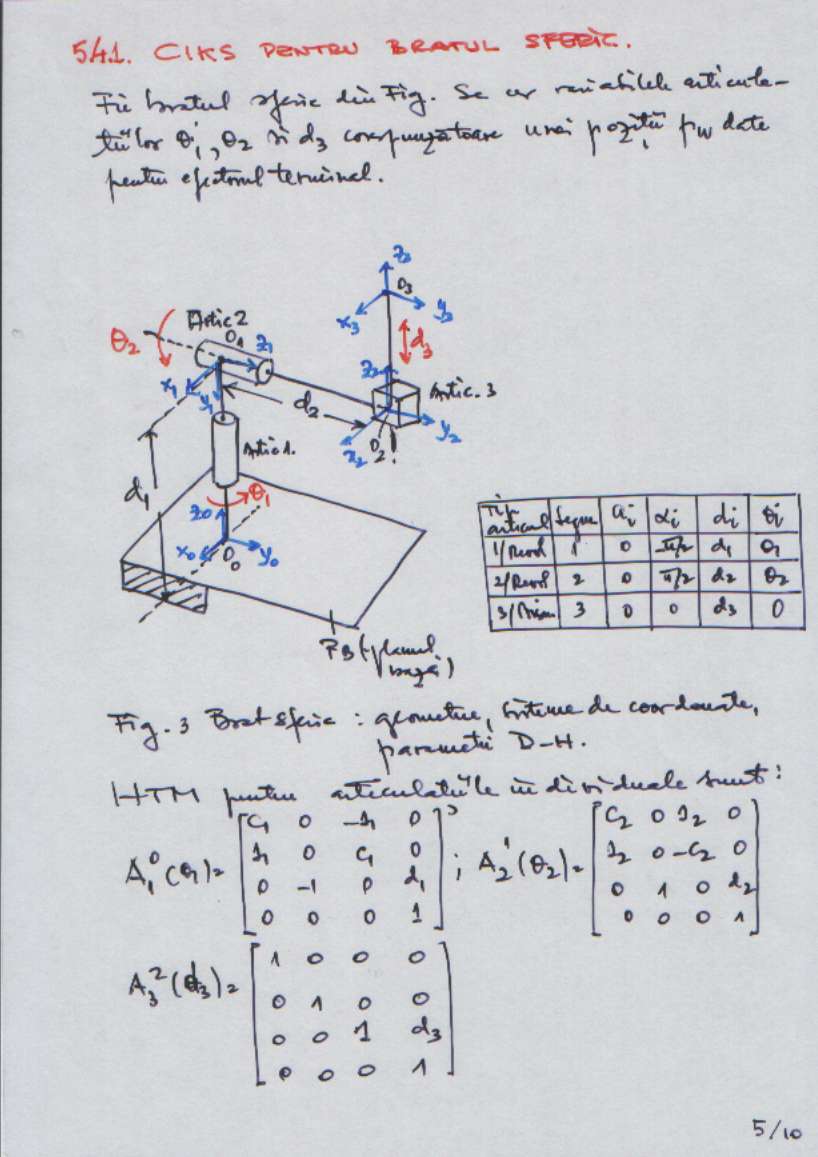 5.4.1. CIKS PENTRU BRAȚUL SFERIC.
Fie brațul sferic din Fig. Se cer variabilele articula-
țiilor θ1, θ2 și d3 corespunzătoare unei poziții pw date
pentru efectorul terminal.
z3
O3
x3 y3
Artic 2
θ2 O1 z1
d3
z2
x1 y1
d2
Artic. 3
y2
x2 O2!
Artic 1.
d1
θ1
z0
x0 O0 y0
PB (planul
bazei)
Tip
articul Segm ai αi di θi
1/Revol 1 0 -π/2 d1 θ1
2/Revol 2 0 π/2 d2 θ2
3/Prism 3 0 0 d3 0
Fig. 3 Braț sferic : geometrie, sisteme de coordonate,
parametri D-H.
HTM pentru articulațiile individuale sunt:
A1^0(θ1)= [ C1 0 -s1 0 ; A2^1(θ2)= [ C2 0 s2 0
s1 0 C1 0 s2 0 -C2 0
0 -1 0 d1 0 1 0 d2
0 0 0 1 ] 0 0 0 1 ]
A3^2(d3)= [ 1 0 0 0
0 1 0 0
0 0 1 d3
0 0 0 1 ]
5/10